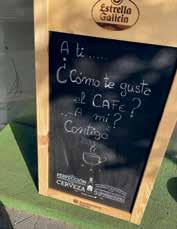 Estrella
Galicia
A ti.....
¿Cómo te gusta
el CAFÉ?
...A mi?
Contigo
PERFECCIÓN
CERVEZA